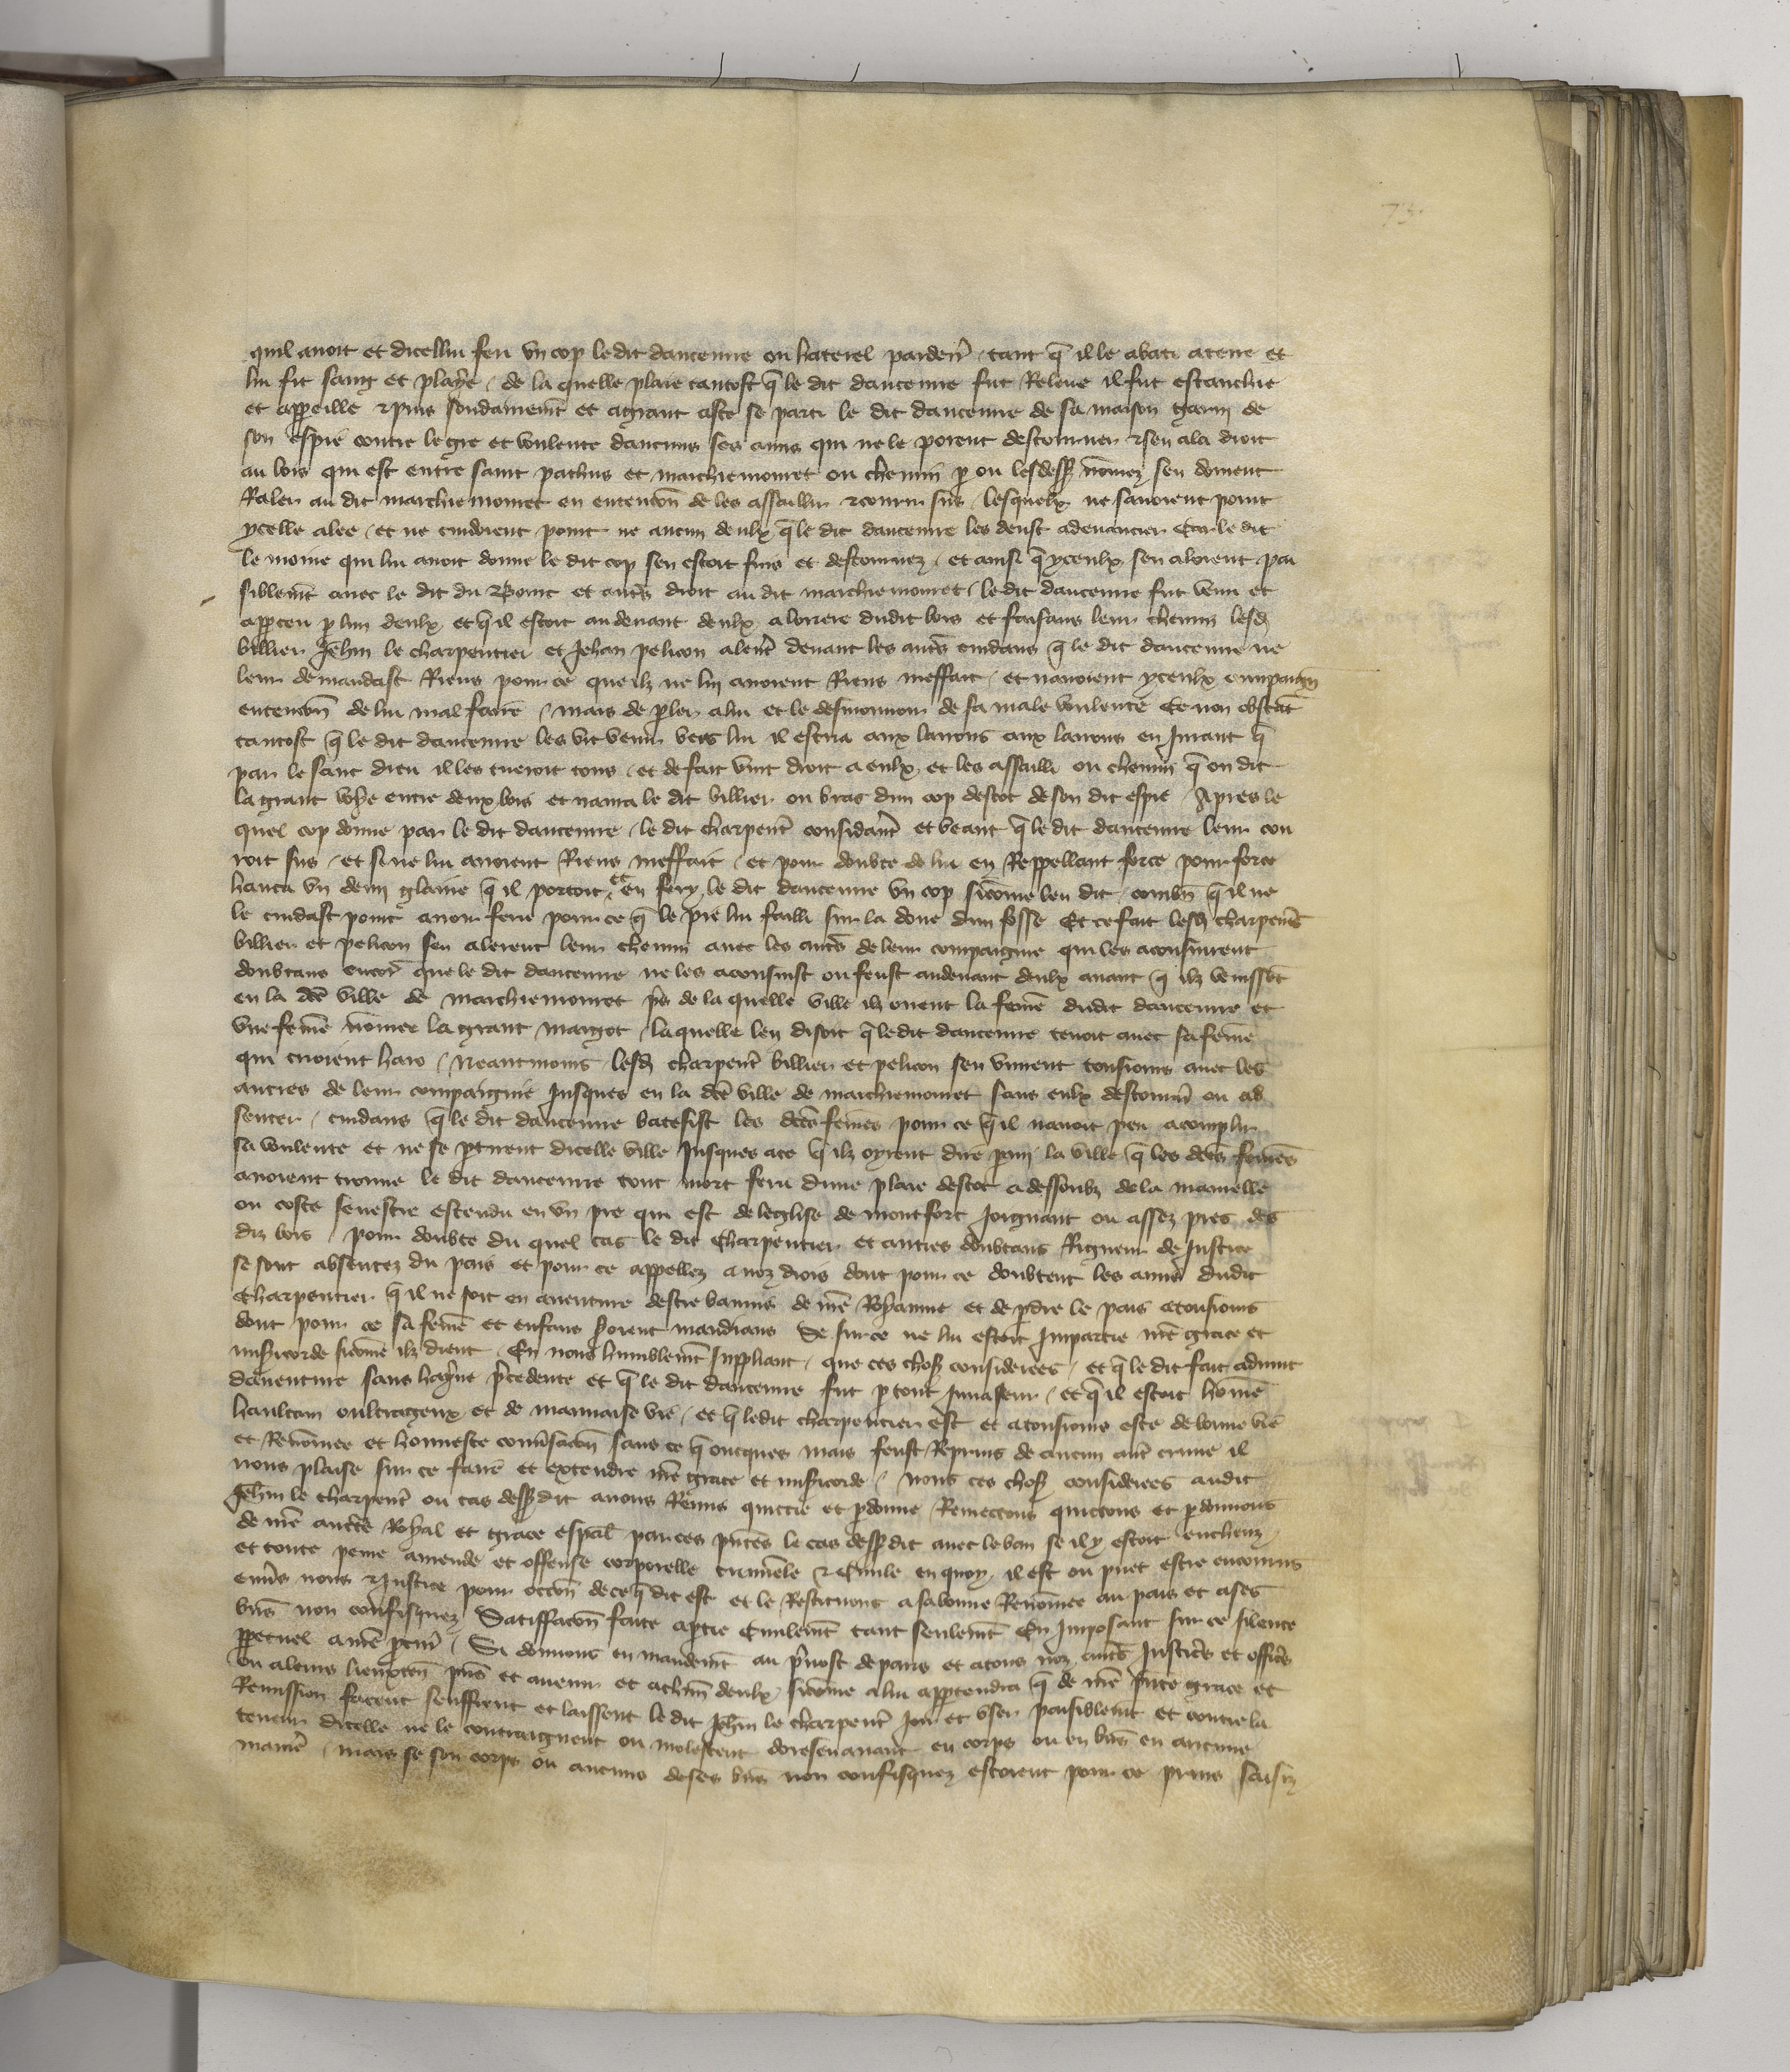 73
quil avoit et dicellui feri un cop ledit dancenne ou haterel parderr tant q il le abati a terre et
lui fit sang et playe / de la quelle plaie tantost q le dit dancenne fut Releve il fut estanchie
et appeille & puis soudainemt et a grant aste se parti le dit dancenne de sa maison garni de
son espie contre le gre et voulente daucuns ses amis qui ne le porent destourner & sen ala droit
au bois qui est entre saint pathus et marchiemoret ou chemin p ou lesdess nomez sen doivent
Raler au dit marchiemoret en entencion de les assaillir & courir sus / lesquelx ne savoient point
ycelle alee / et ne cuidoient point ne aucun deulx q le dit dancenne les deust adevancier Car le dit
le moine qui lui avoit donne le dit cop sen estoit fuis et destournez / et ainsi q yceulx sen aloient pai
siblemt avec le dit du Pont et auts droit au dit marchiemoret / le dit dancenne fut venu et
apperceu p lun deulx et q il estoit au devant deulx a loriere dudit bois et faisans leur chemin lesd
villier Jehan le charpentier et Jehan pelicon alert devant les auts cuidans q le dit dancenne ne
leur demandast Riens pour ce que ilz ne lui avoient Riens meffait / et navoient yceulx compaign
entencion de lui mal faire / mais de pler a lui et le desmouvoir de sa male voulente Ce non obstat
tantost q le dit dancenne les vit venir vers lui il escria aux larrons aux larrons en Jurant q
par le sanc dieu il les tueroit tous / et de fait vint droit a eulx et les assailli ou chemin q on dit
la grant voye entre deux bois et navra le dit villier ou bras dun cop destoc de son dit espie / Apres le
quel cop donne par le dit dancenne / le dit charpent considert et veant q le dit dancenne leur cou
roit sus / et si ne lui avoient Riens meffait / et pour doubte de lui en Reppellant force pour force
hauca un demi glaive q il portoit et en fery le dit dancenne un cop sicome len dit / combn q il ne
le cuidast point avoir feru pour ce q le pie lui failli sur la doue dun fosse Et ce fait lesd charpent
villier et pelicon sen alerent leur chemin avec les auts de leur compaignie qui les aconsuirent
doubtans encor que le dit dancenne ne les aconsuist ou feust au devant deulx avant q ilz venisset
en la dce ville de marchiemoret ps de la quelle ville ilz oirent la feme dudit dancenne et
une feme nomee la grant margot / laquelle len disoit q le dit dancenne tenoit avec sa feme
qui crioient haro / Neantmoins lesd charpent villier et pelicon sen vinrent tousiours avec les
autres de leur compaignie Jusques en la dce ville de marchiemoret sans eulx destournr ou ab
senter / cuidans q le dit dancenne batesist les dces femes pour ce q il navoit peu acomplir
sa voulente et ne se ptirent dicelle ville Jusques a ce q ilz oyrent dire pmi la ville q les dces femes
avoient trouve le dit dancenne tout mort feru dune plaie destoc a dessoubz de la mamelle
ou coste senestre estendu en un pre qui est de leglise de montfort Joignant ou assez pres des
diz bois / Pour doubte du quel cas le dit Charpentier et autres doubtans Rigueur de Justice
se sont absentez du pais et pour ce appellez a noz drois dont pour ce doubtent les amis dudit
Charpentier q il ne soit en aventure destre bannis de nre Royaume et de pdre le pais a tousiours
dont pour ce sa feme et enfans seroient mandians Se sur ce ne lui estoit Impartie nre grace et
misicorde sicome ilz dient / En nous humblemt suppliant / que ces chos considerees / et q le dit fait advint
daventure sans hayne pcedente et q le dit dancenne fut p tout Invaseur / et q il estoit home
haultain oultrageux et de mauvaise vie / et q ledit charpentier est et a tousiours este de bonne vie
et Renomee et honneste convsacion sans ce q oncques mais feust Reprins de aucun aut crime il
nous plaise sur ce faire et extendre nre grace et misicorde / Nous ces chos considerees audit
Jehan le charpent ou cas dessus dit avons Remis quictie et pdonne / Remectons quictons et pdonnons
de nre aucte Royal et grace espcial par ces pntes le cas dess dit avec le ban se il y estoit encheuz
et toute peine amende et offense corporelle crimele & Civile en quoy il est ou puet estre encourus
envs nous & Justice pour occion de ce q dit est et le Restituons a sa bonne Renomee au pais et a ses
bns non confisquez Satiffacion faite a ptie Civilemt tant seulemt En Imposant sur ce silence
ppetuel a nre pcur / Si donnons en mandemt au pvost de paris et a tous noz auts Justics et offics
ou a leurs lieuxten pns et avenir et a chun deulx sicome a lui apptendra q de nre pnte grace et
Remission facent seuffrent et laissent le dit Jehan le charpent Joir et user paisiblemt et contre la
teneur dicelle ne le contraignent ou molestent doresenavant en corps ou en bns en aucune
manie / mais se son corps ou aucuns de ses bns non confisquez estoient pour ce prins saisiz